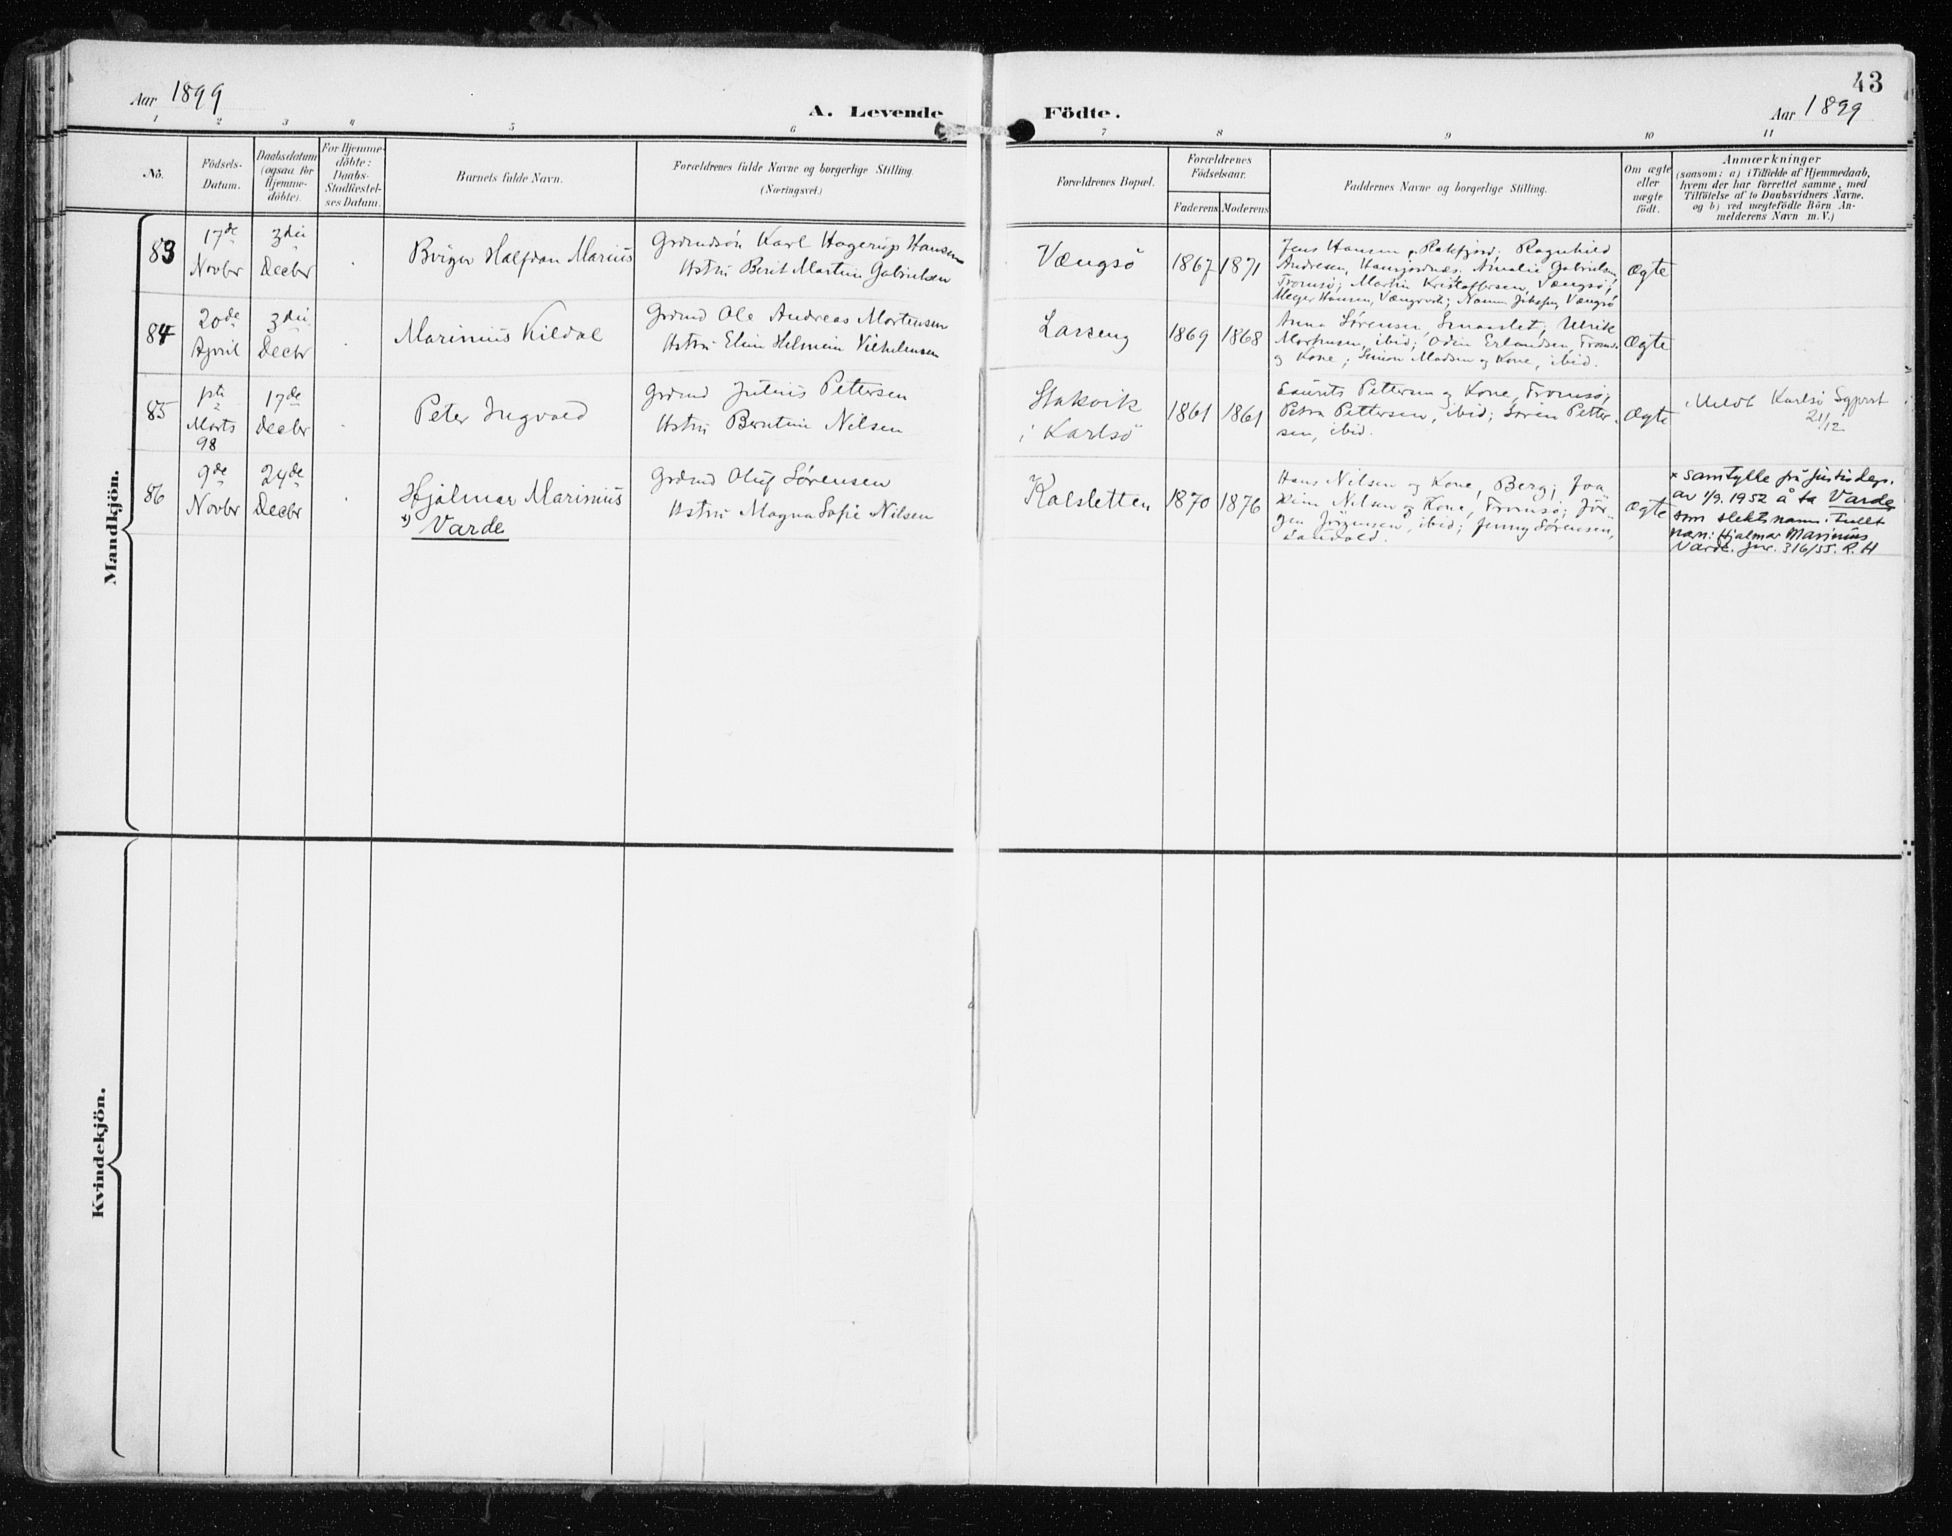 Aar 1899
A. Levende Födte.
43
Aar 1899
1 2 3 4 5 6 7 8 9 10 11
No.
Födsels-
Datum.
Daabsdatum
(ogsaa for
Hjemme-
döbte).
For Hjemme-
döbte:
Daabs-
Stadfæstel-
ses Datum.
Barnets fulde Navn.
Forældrenes fulde Navne og borgerlige Stilling.
(Næringsvei.)
Forældrenes Bopæl.
Forældrenes
Födselsaar.
Faderens Moderens
Faddernes Navne og borgerlige Stilling.
Om ægte
eller
uægte
födt.
Anmærkninger
(saasom: a) i Tilfælde af Hjemmedaab,
hvem der har forrettet samme, med
Tilföielse af to Daabsvidners Navne,
og b) ved uægtefödte Börn An-
melderens Navn m. V.)
Mandkjön.
83
17de
Novbr
3die
Decbr
Birger Halfdan Marius
Grdmdsön Karl Hagerup Hansen
Hstru Berit Martine Gabrielsen
Vængsö
1867
1871
Jens Hansen, Rakfjord; Ragnhild
Andresen, Hansjordnæs; Amalie Gabrielsen,
Tromsö; Martin Kristoffersen, Vængsö;
Meyer Hansen, Vængsö
Ægte
84
20de
April
3die
Decbr
Marinius Kildal
Grdmd Ole Andreas Mortensen
Hstru Eline Helmine Vilhelmsen
Larseng
1869
1868
Anna Sørensen, Smaaslet; Ulrik
Mortensen, ibid; Odin Erlandsen, Troms.
og Kone; Simon Madsen og Kone, ibid.
Ægte
85
1ste
Marts
98
17de
Decbr
Peter Ingvald
Grdmd Julius Pettersen
Hstru Berntine Nilsen
Stakvik
i Karlsö
1861
1861
Laurits Pettersen og Kone, Tromsö;
Petra Pettersen, ibid; Sören Petter-
sen, ibid.
Ægte
Meldt Karlsö Sgprst
21/12
86
9de
Novbr
24de
Decbr
Hjalmar Marinius
x) Varde
Grdmd Oluf Sörensen
Hstru Magna Sofie Nilsen
Kalsletten
1870
1876
Hans Nilsen og Kone, Berg; Joa-
kim Nilsen og Kone, Tromsö; Jör-
gen Jörgensen, ibid; Jenny Sörensen,
Ægte
x samtykke fra Justisdep.
av 1/9. 1952 å ta Varde
som slektsnavn. Fullt
navn: Hjalmar Marinius
Varde. Jnr. 316/55. R. H
Kvindekjön.